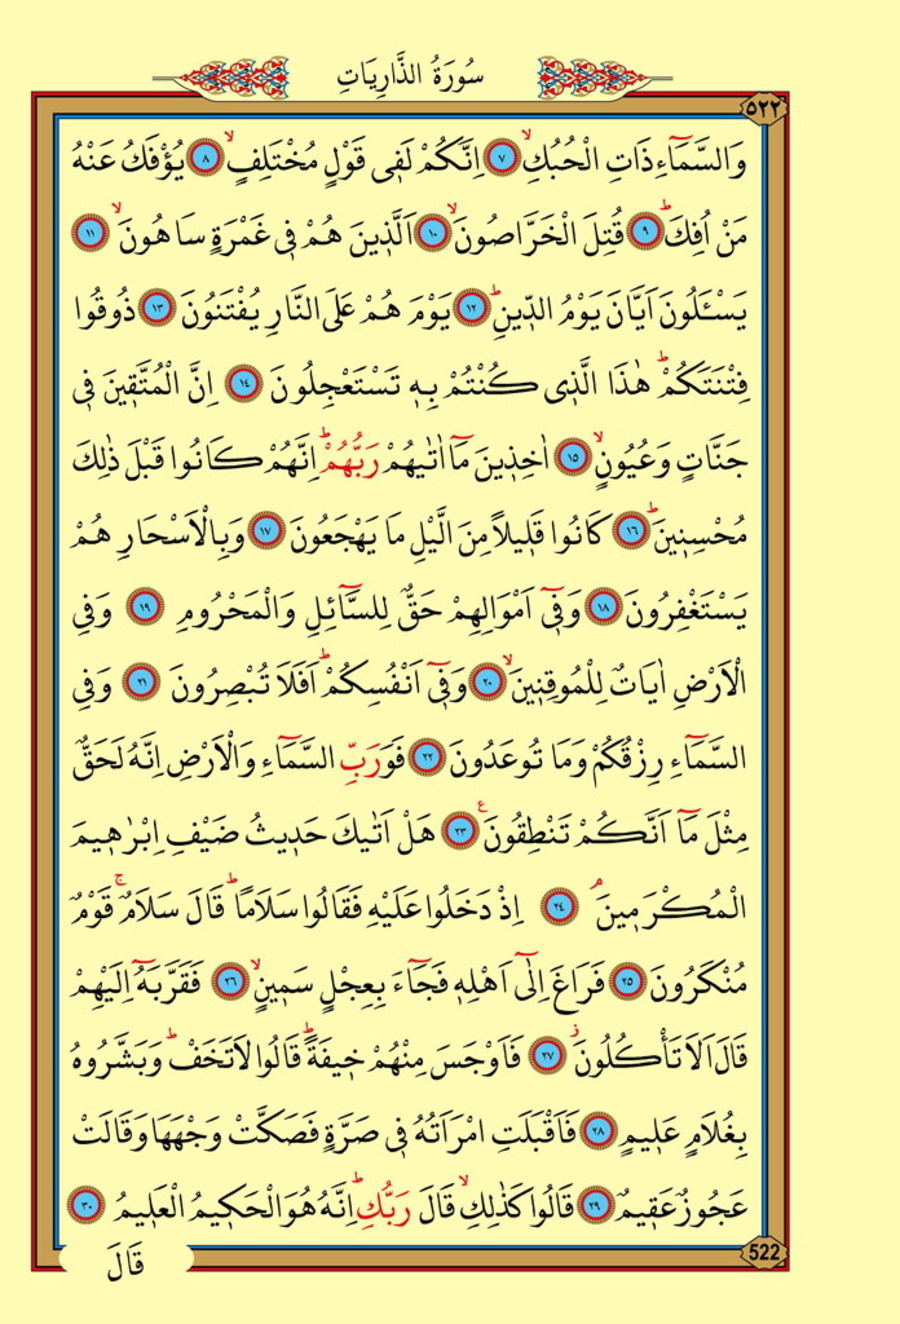 سُورَةُ الذَّارِيَاتِ
٥٢٢
وَالسَّمَٓاءِ ذَاتِ الْحُبُكِۙ ﴿٧﴾ اِنَّكُمْ لَف۪ى قَوْلٍ مُخْتَلِفٍۙ ﴿٨﴾ يُؤْفَكُ عَنْهُ
مَنْ اُفِكَۜ ﴿٩﴾ قُتِلَ الْخَرَّاصُونَۙ ﴿١٠﴾ اَلَّذ۪ينَ هُمْ ف۪ى غَمْرَةٍ سَاهُونَۙ ﴿١١﴾
يَسْـَٔلُونَ اَيَّانَ يَوْمُ الدّ۪ينِۜ ﴿١٢﴾ يَوْمَ هُمْ عَلَى النَّارِ يُفْتَنُونَ ﴿١٣﴾ ذُوقُوا
فِتْنَتَكُمْۜ هٰذَا الَّذ۪ى كُنْتُمْ بِه۪ تَسْتَعْجِلُونَ ﴿١٤﴾ اِنَّ الْمُتَّق۪ينَ ف۪ى
جَنَّاتٍ وَعُيُونٍۙ ﴿١٥﴾ اٰخِذ۪ينَ مَٓا اٰتٰيهُمْ رَبُّهُمْۜ اِنَّهُمْ كَانُوا قَبْلَ ذٰلِكَ
مُحْسِن۪ينَۜ ﴿١٦﴾ كَانُوا قَل۪يلاً مِنَ الَّيْلِ مَا يَهْجَعُونَ ﴿١٧﴾ وَبِالْاَسْحَارِ هُمْ
يَسْتَغْفِرُونَ ﴿١٨﴾ وَف۪ٓى اَمْوَالِهِمْ حَقٌّ لِلسَّٓائِلِ وَالْمَحْرُومِ ﴿١٩﴾ وَفِى
الْاَرْضِ اٰيَاتٌ لِلْمُوقِن۪ينَۙ ﴿٢٠﴾ وَف۪ٓى اَنْفُسِكُمْۜ اَفَلَا تُبْصِرُونَ ﴿٢١﴾ وَفِى
السَّمَٓاءِ رِزْقُكُمْ وَمَا تُوعَدُونَ ﴿٢٢﴾ فَوَرَبِّ السَّمَٓاءِ وَالْاَرْضِ اِنَّهُ لَحَقٌّ
مِثْلَ مَٓا اَنَّكُمْ تَنْطِقُونَ ع ﴿٢٣﴾ هَلْ اَتٰيكَ حَد۪يثُ ضَيْفِ اِبْرٰه۪يمَ
الْمُكْرَم۪ينَۢ ﴿٢٤﴾ اِذْ دَخَلُوا عَلَيْهِ فَقَالُوا سَلَامًاۜ قَالَ سَلَامٌۚ قَوْمٌ
مُنْكَرُونَ ﴿٢٥﴾ فَرَاغَ اِلٰٓى اَهْلِه۪ فَجَٓاءَ بِعِجْلٍ سَم۪ينٍۙ ﴿٢٦﴾ فَقَرَّبَهُٓ اِلَيْهِمْ
قَالَ اَلَا تَأْكُلُونَۘ ﴿٢٧﴾ فَاَوْجَسَ مِنْهُمْ خ۪يفَةًۜ قَالُوا لَا تَخَفْۜ وَبَشَّرُوهُ
بِغُلَامٍ عَل۪يمٍ ﴿٢٨﴾ فَاَقْبَلَتِ امْرَاَتُهُ ف۪ى صَرَّةٍ فَصَكَّتْ وَجْهَهَا وَقَالَتْ
عَجُوزٌ عَق۪يمٌ ﴿٢٩﴾ قَالُوا كَذٰلِكِۙ قَالَ رَبُّكِۜ اِنَّهُ هُوَ الْحَك۪يمُ الْعَل۪يمُ ﴿٣٠﴾
522
قَالَ